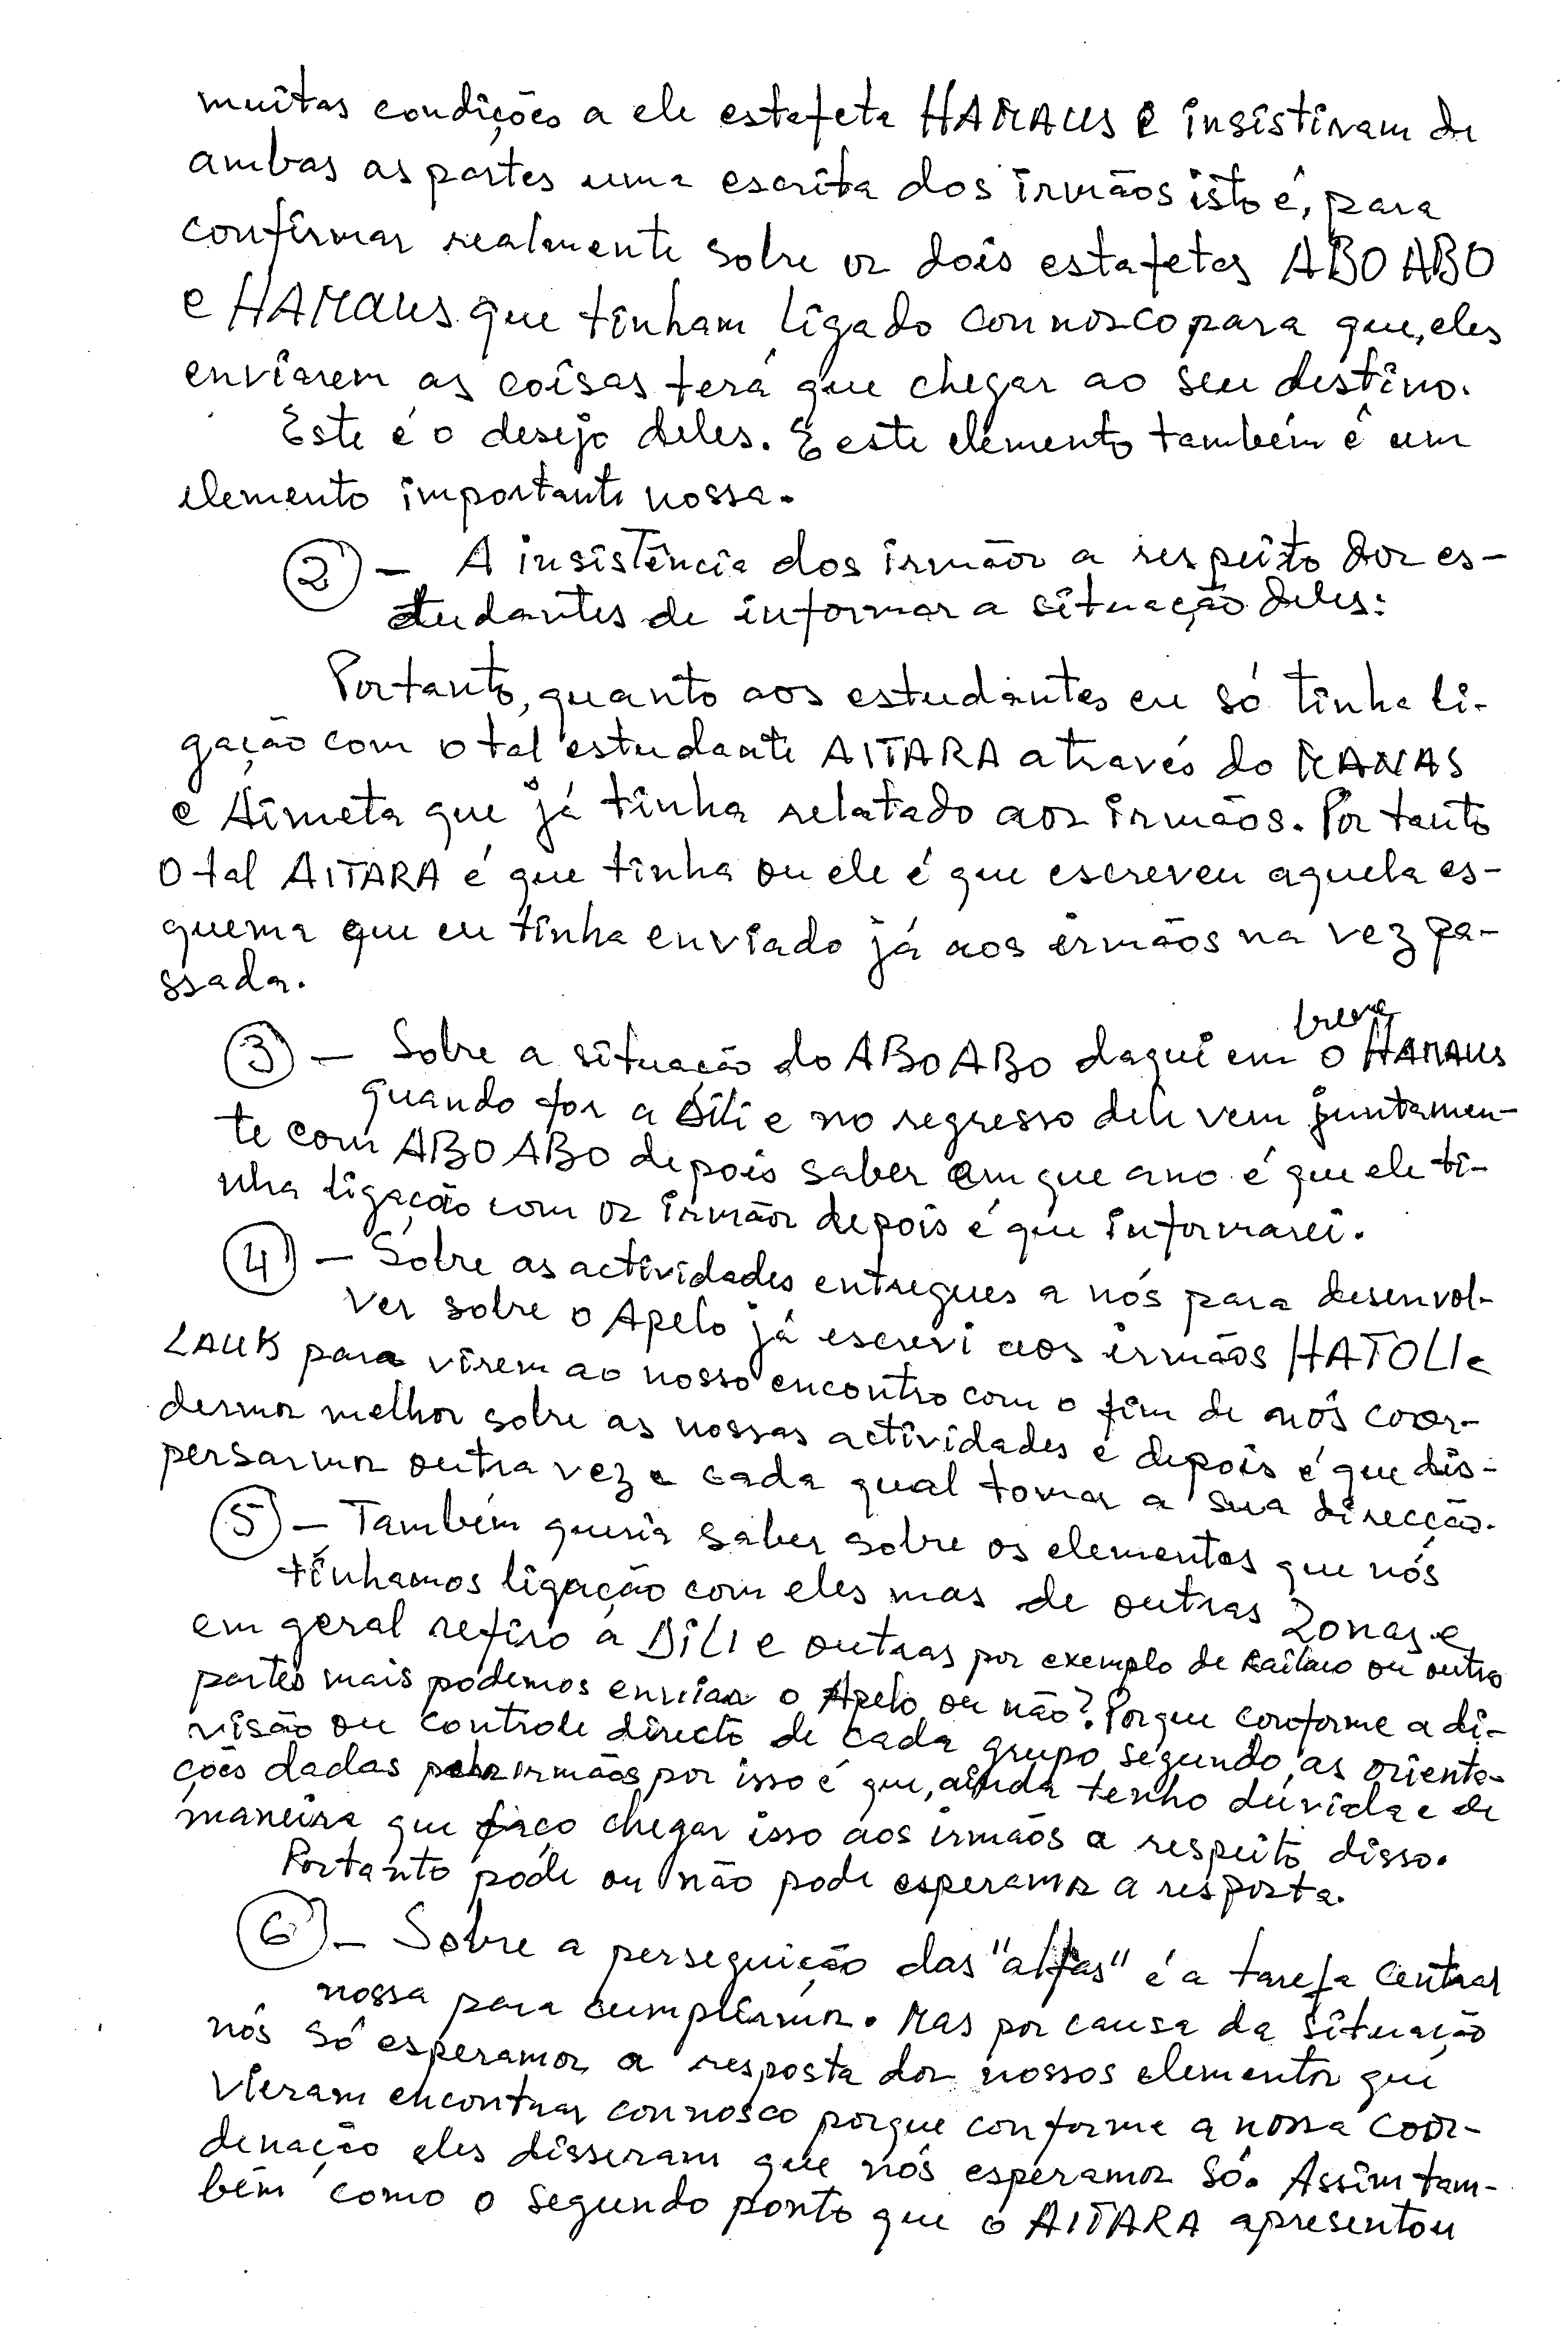 muitas condições a ele estafeta HAMAUS e insistiram de
ambas as partes uma escrita dos irmãos isto é, para
confirmar realmente sobre os dois estafetas ABO ABO
e HAMAUS que tinham ligado connosco para que, eles
enviarem as coisas terá que chegar ao seu destino.
Este é o desejo deles. E este elemento também é um
elemento importante nossa.
② - A insistência dos irmãos a respeito dos es-
tudantes de informar a situação deles:
Portanto, quanto aos estudantes eu só tinha li-
gação com o tal estudante AITARA através do MANAS
e que já tinha relatado aos irmãos. Portanto
O tal AITARA é que tinha ou ele é que escreveu aquela es-
quema que eu tinha enviado já aos irmãos na vez pa-
ssada.
③ - Sobre a situação do ABO ABO daqui em breve o HAMAUS
quando for a Dili e no regresso dele vem juntamen-
te com ABO ABO depois saber em que ano é que ele ti-
nha ligação com os irmãos depois é que informarei.
④ - Sobre as actividades entregues a nós para desenvol-
ver sobre o Apelo já escrevi aos irmãos HATOLI e
LAUK para virem ao nosso encontro com o fim de nós coor-
dermos melhor sobre as nossas actividades e depois é que dis-
persarmos outra vez e cada qual tomar a sua direcção.
⑤ - Também queria saber sobre os elementos que nós
tínhamos ligação com eles mas de outras zonas e
em geral refiro a Dili e outras por exemplo de Railaco ou outra
partes mais podemos enviar o Apelo ou não? Porque conforme a di-
visão ou controle directo de cada grupo segundo as orienta-
ções dadas pelos irmãos, por isso é que, ainda tenho dúvida e de
maneira que faço chegar isso aos irmãos a respeito disso.
Portanto pode ou não pode esperamos a resposta.
⑥ - Sobre a perseguição das "alfas" é a tarefa central
nossa para cumprirmos. Mas por causa da situação
nós só esperamos a resposta dos nossos elementos que
vieram encontrar connosco porque conforme a nossa coor-
denação eles disseram que nós esperamos só. Assim tam-
bém como o segundo ponto que o AITARA apresentou